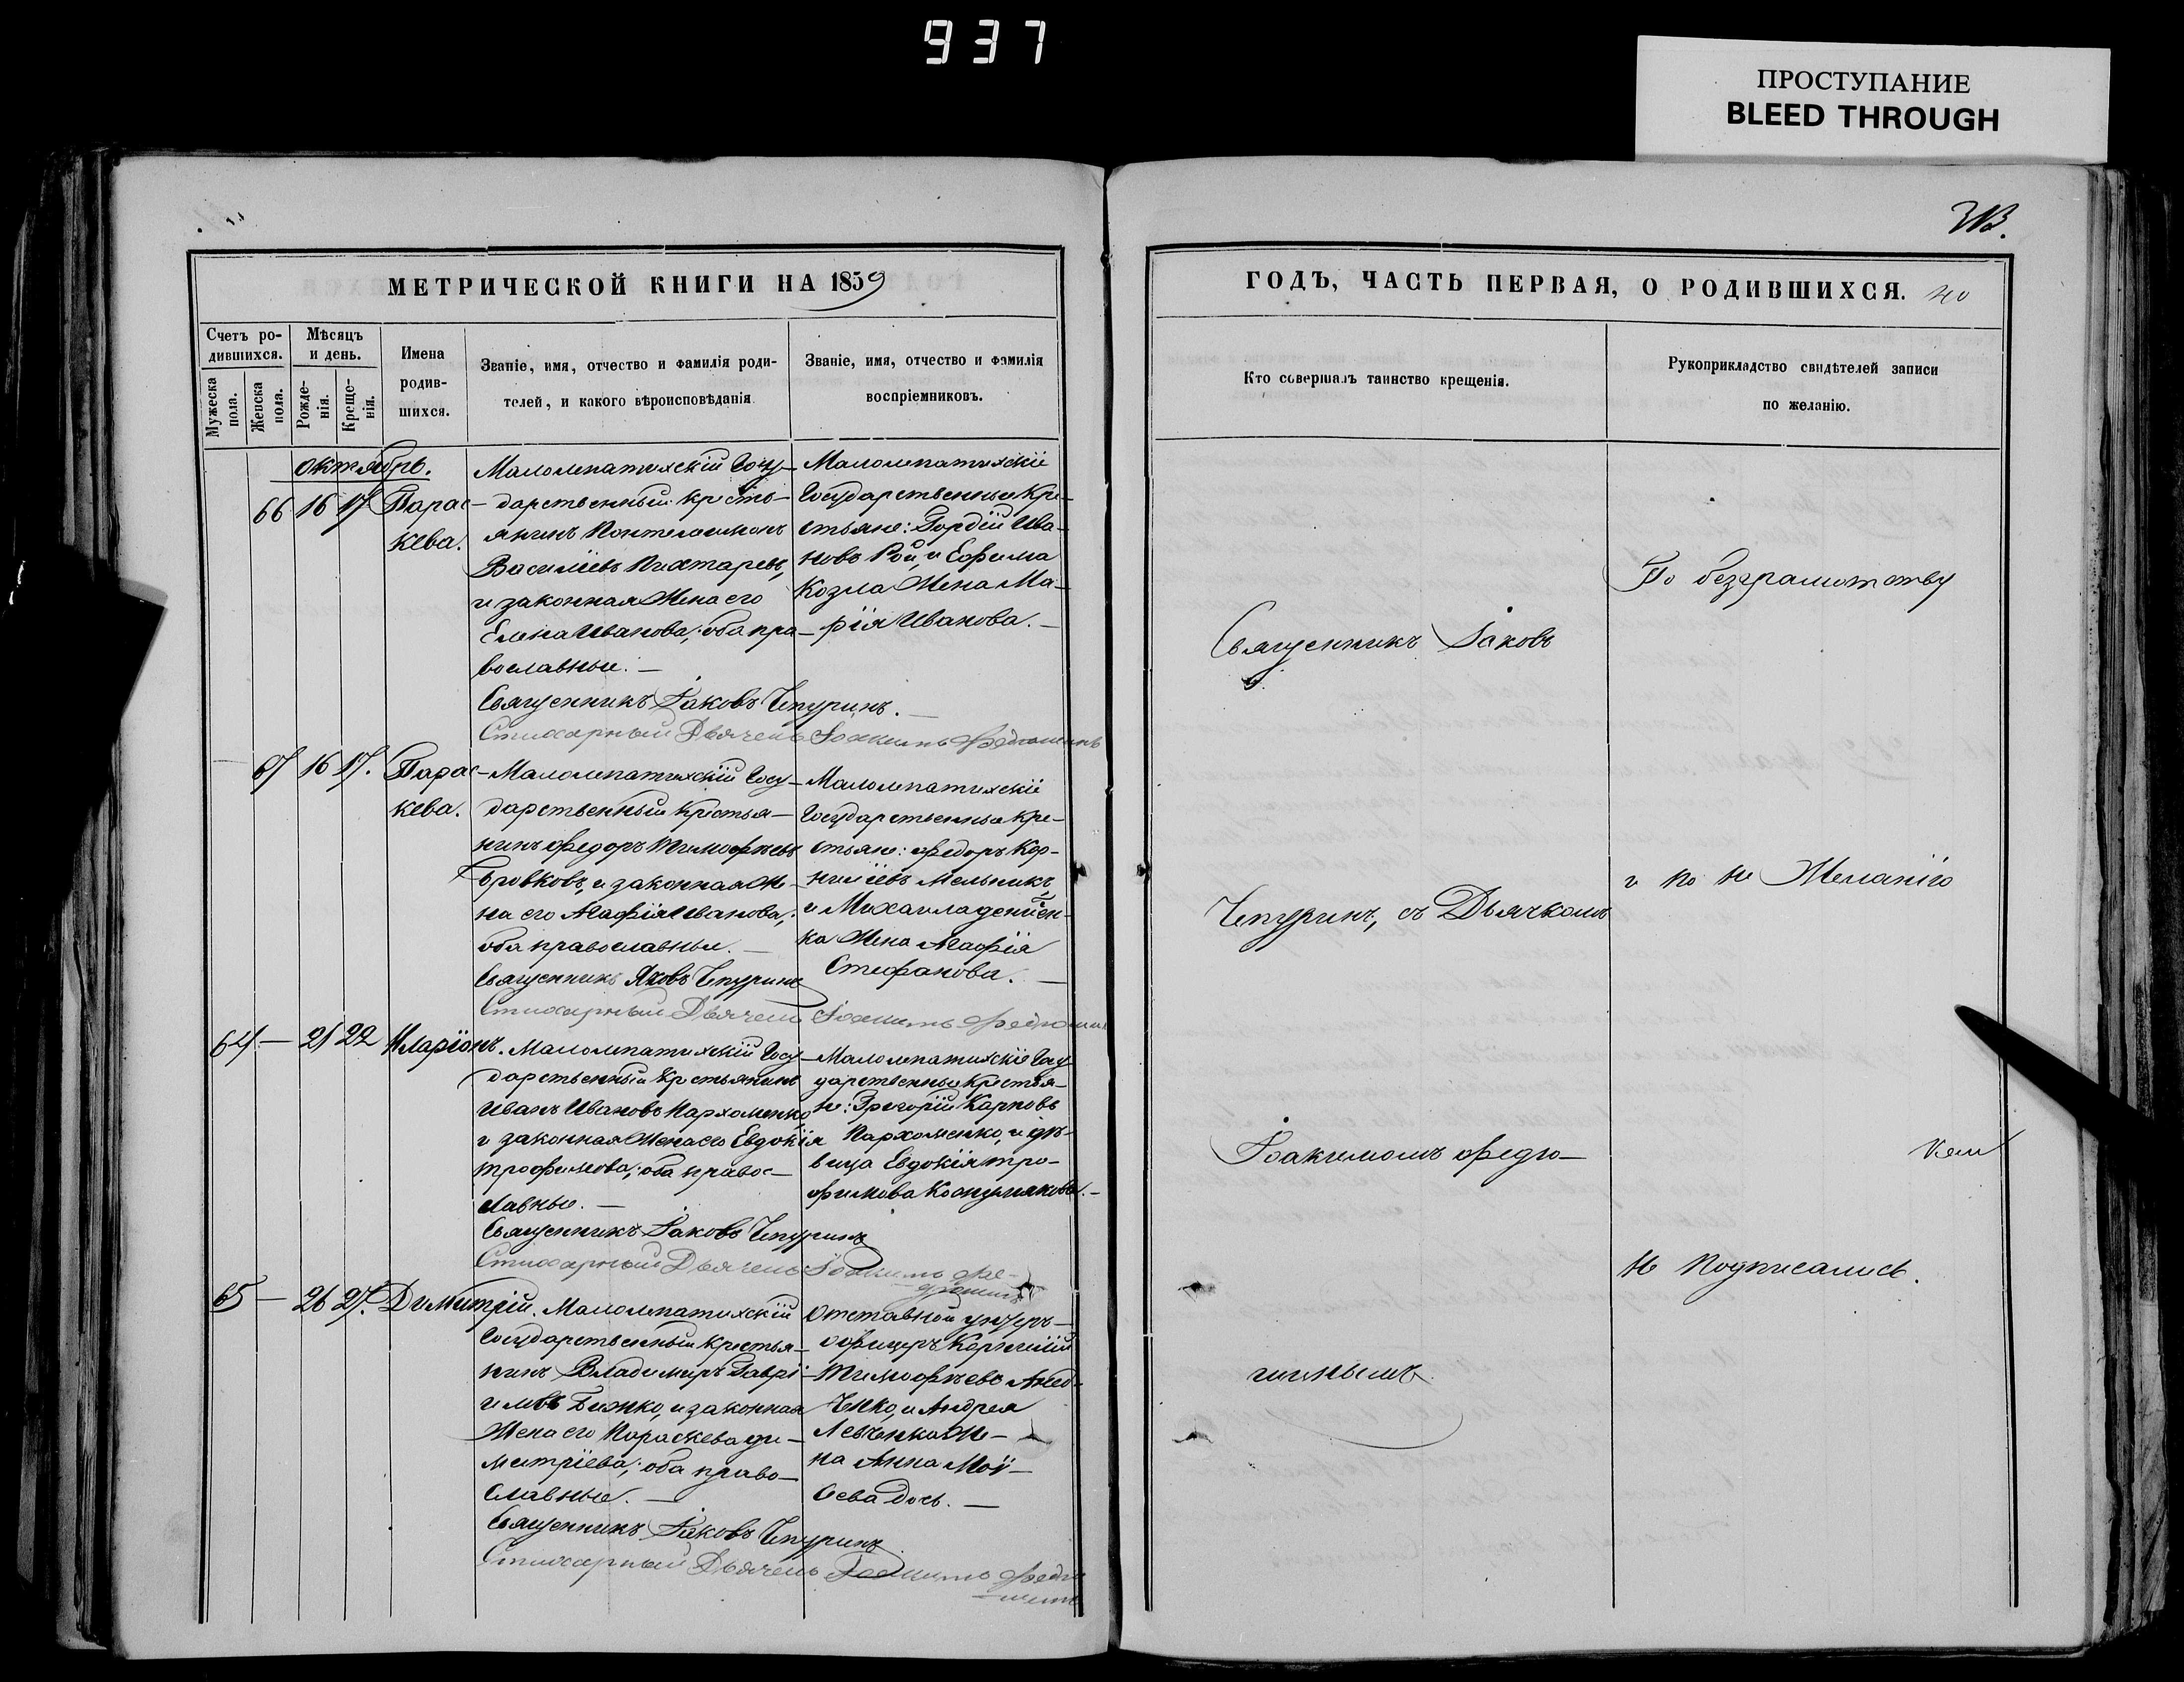 937
ПРОСТУПАНИЕ
BLEED THROUGH
МЕТРИЧЕСКОЙ КНИГИ НА 1859
Счетъ ро-
дившихся.
Мужеска
пола.
Женска
пола.
Мѣсяцъ
и день.
Рожде-
нія.
Креще-
нія.
Имена
родив-
шихся.
Званіе, имя, отчество и фамилія роди-
телей, и какого вѣроисповѣданія
Званіе, имя, отчество и фамилія
воспріемниковъ.
октябрь.
66 16 17 Парас-
кева.
Малолепатихскій Госу-
дарственный кресть-
янинъ Пантелеимонъ
Василіевъ Пихтаревъ,
и законная Жена его
Елена Иванова; оба пра-
вославные. —
Священникъ Іаковъ Чепуринъ. —
Стихарный Дьячекъ Іоакимъ Федюшинъ
Малолепатихскіе
Государственные Кре-
стьяне: Гордій Ива-
новъ Рой, и Ефима
Козла Жена Ма-
рія Иванова. —
67 16 17. Парас-
кева.
Малолепатихскій Госу-
дарственный Крестья-
нинъ Федоръ Тимофѣевъ
Бровковъ, и законная Же-
на его Агафія Иванова;
оба православные. —
Священникъ Яковъ Чепуринъ
Стихарный Дьячекъ Іоакимъ Федюшинъ
Малолепатихскіе
Государственные Кре-
стьяне: Федоръ Кор-
ниліевъ Мельникъ,
и Михаила
ка Жена Агафія
Стефанова. —
64 — 21 22 Иларіонъ.
Малолепатихскій Госу-
дарственный Крестьянинъ
Иванъ Ивановъ Пархоменко,
и законная Жена его Евдокія
Трофимова; оба правос-
лавные. —
Священникъ Іаковъ Чепуринъ
Стихарный Дьячекъ Іоакимъ Фе-
дюшинъ
Малолепатихскіе Госу
дарственные Крестья-
не: Григорій Карповъ
Пархоменко, и дѣ-
вица Евдокія Тро-
фимова
65 — 26 27. Димитрій.
Малолепатихскій
Государственный Крестья-
нинъ Владимиръ Гаврі-
иловъ Бижко, и законная
Жена его Параскева Ди-
митріева; оба право-
славные. —
Священникъ Іаковъ Чепуринъ
Стихарный Дьячекъ Іоакимъ Федю
-шинъ
Отставной унтеръ-
офицеръ Корнилій
Тимофѣевъ
ченко, и Андрея
Левченка Же-
на Анна Мой-
сева дочь. —
ГОДЪ, ЧАСТЬ ПЕРВАЯ, О РОДИВШИХСЯ. 40
Кто совершалъ таинство крещенія.
Рукоприкладство свидѣтелей записи
по желанію.
Священникъ Іаковъ
Чепуринъ, съ Дьячкомъ
Іоакимомъ Федю-
шинымъ.
По безграмотству
и по не Желанію
не подписались.